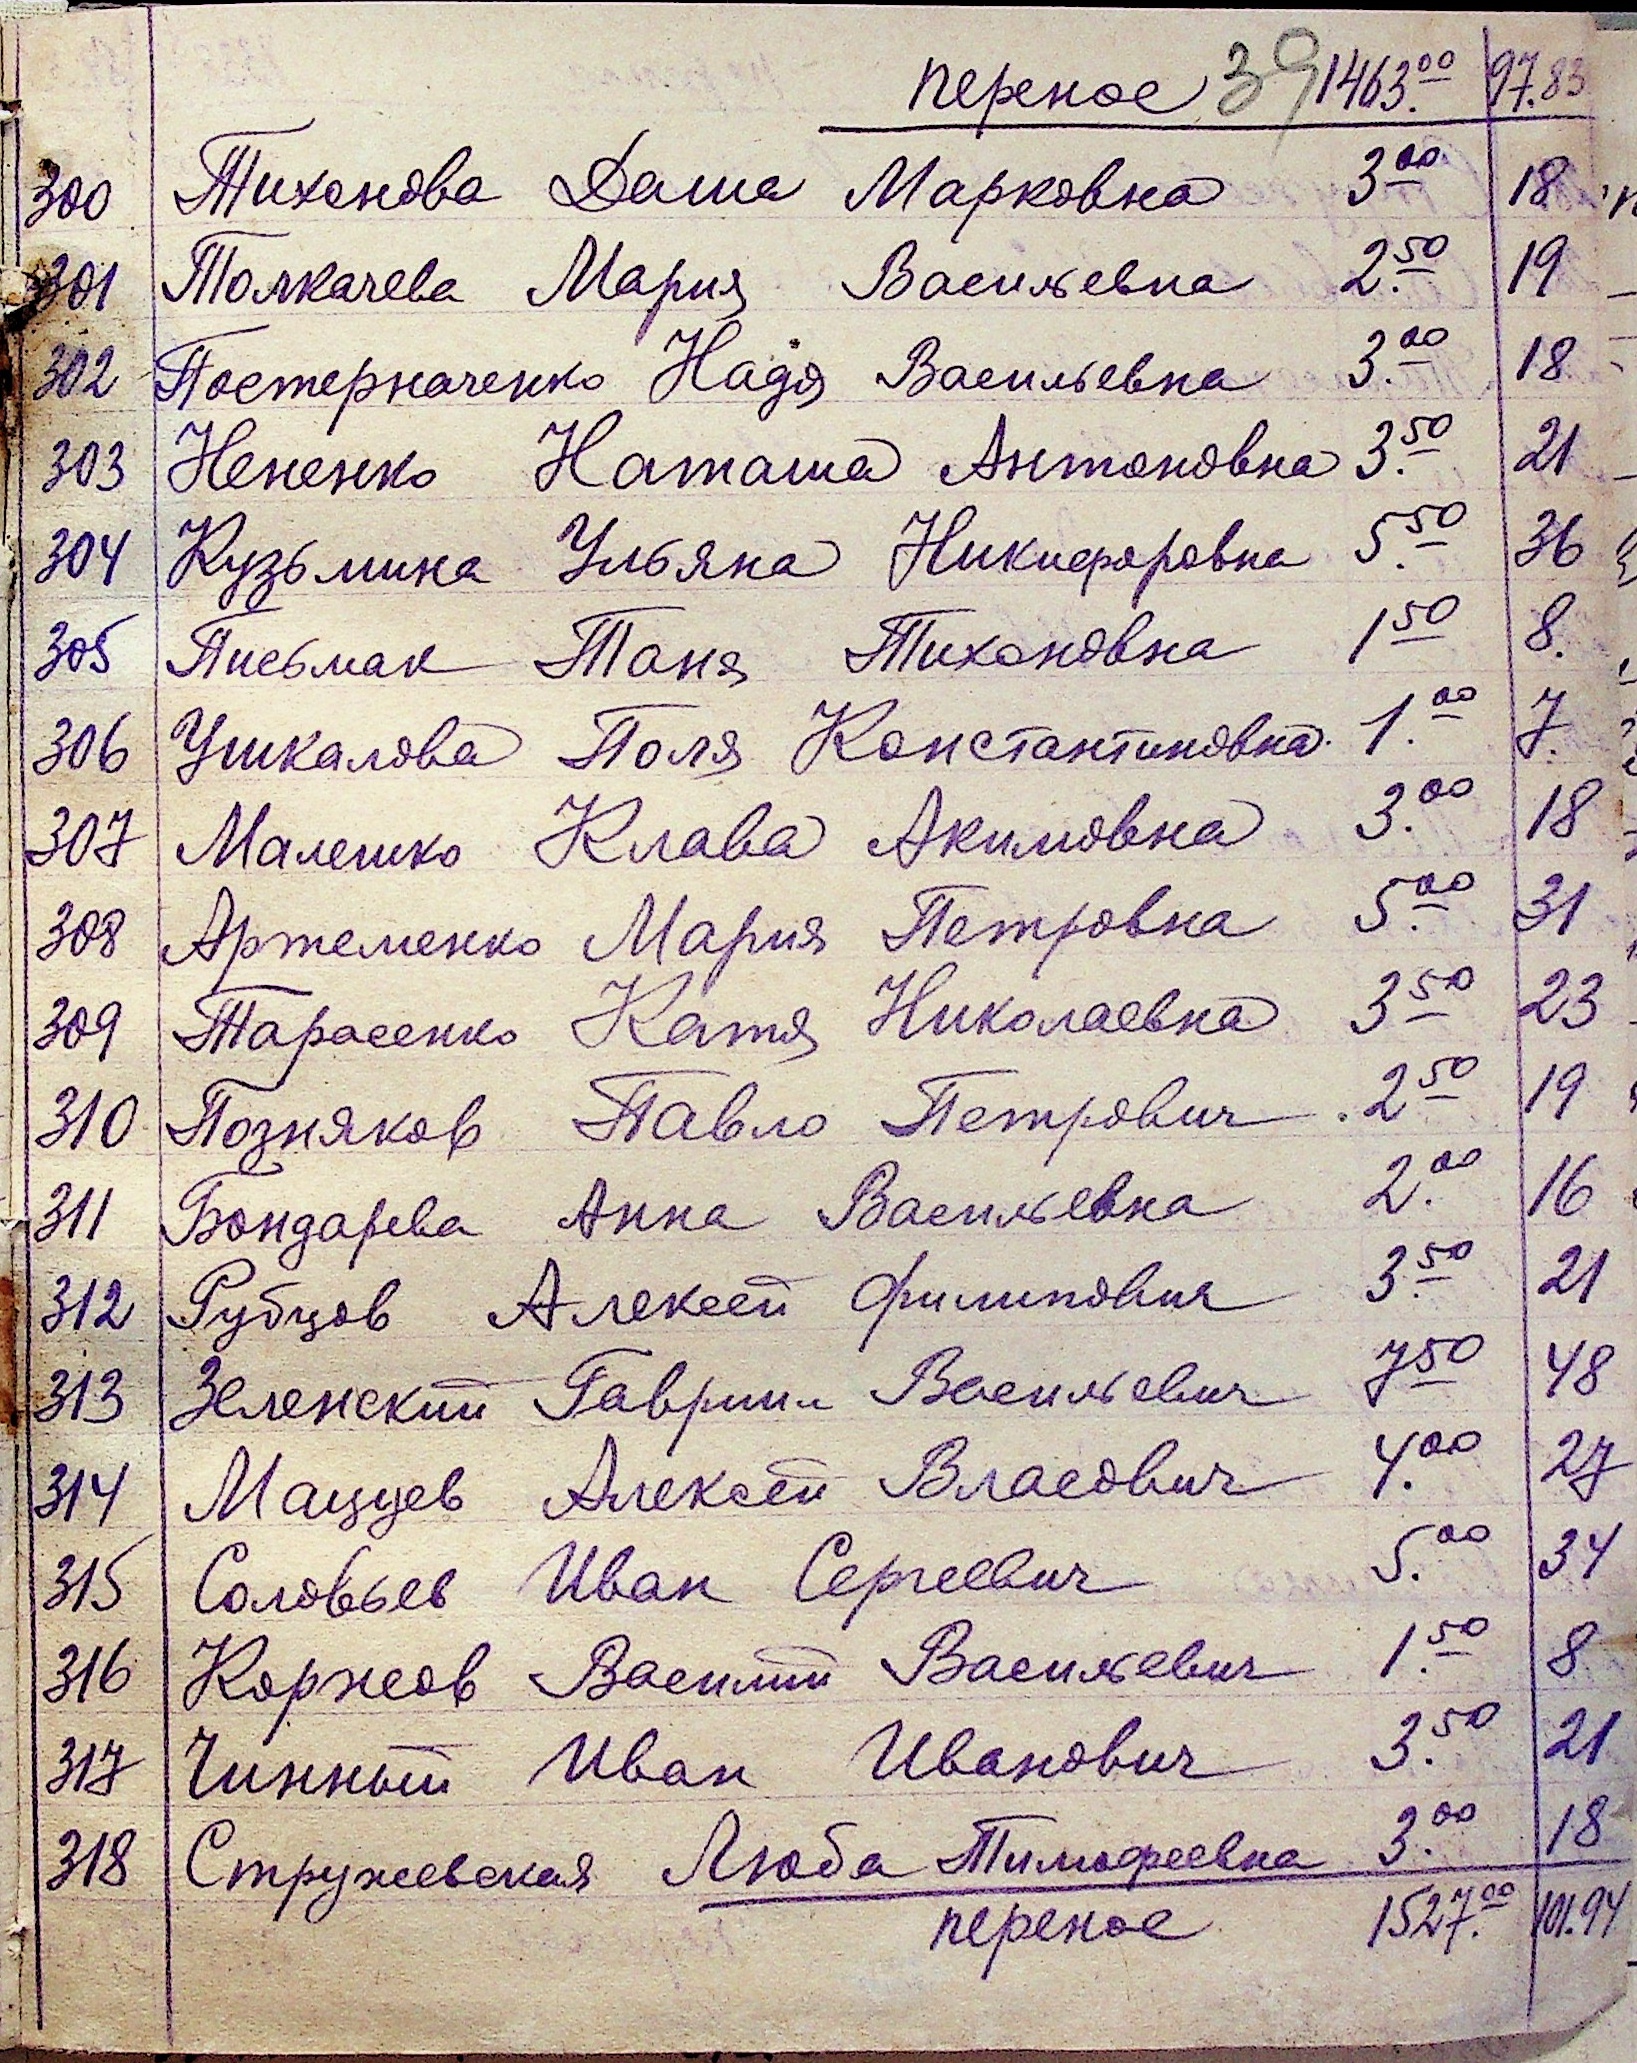 перенос 39 1463.00 97.83
300 Тихонова Даша Марковна 3.00 18
301 Толкачева Мария Васильевна 2.50 19
302 Постерначенко Надя Васильевна 3.00 18
303 Нененко Наташа Антоновна 3.50 21
304 Кузьмина Ульяна Никифоровна 5.50 36
305 Письмак Таня Тихоновна 1 50 8.
306 Ушкалова Поля Константиновна. 1.00 7.
307 Малешко Клава Акимовна 3.00 18
308 Артеменко Мария Петровна 5.00 31
309 Тарасенко Катя Николаевна 3 50 23
310 Позняков Павло Петрович 2 50 19
311 Бондарева Анна Васильевна 2.00 16
312 Рубцов Алексей Филипович 3.50 21
313 Зеленский Гаврил Васильевич 7 50 48
314 Мацуев Алексей Власович 4.00 27
315 Соловьев Иван Сергеевич 5.00 34
316 Коржов Василий Васильевич 1.50 8
317 Чинный Иван Иванович 3.50 21
318 Стружевская Люба Тимофеевна 3.00 18
перенос 1527.00 101.94